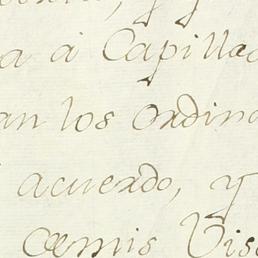 a á Capilla
an los ordin
acuerdo, y
cemis Vis